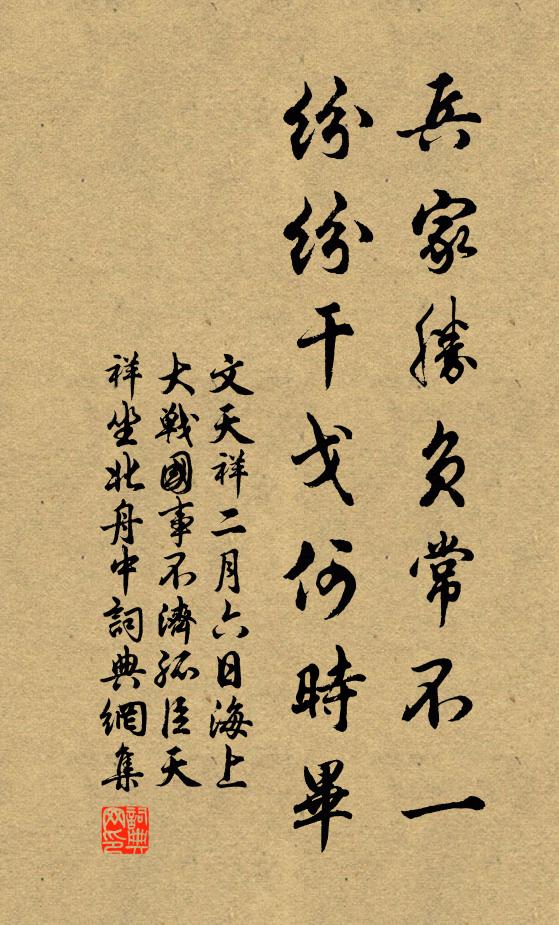 兵家勝負常不一
紛紛干戈何時畢
文天祥二月六日海上
大戰國事不濟孤臣天
祥坐北舟中詞典網集
詞典网印